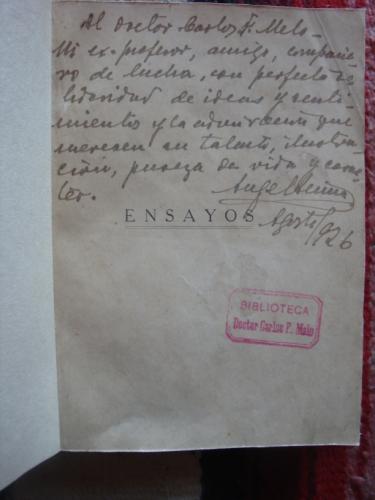 Al Doctor Carlos F. Melo
Mi ex-profesor, amigo, compañe-
ro de lucha, con perfecta so-
lidaridad de ideas y senti-
mientos y la admiración que
merecen su talento, ilustra-
ción, pureza de vida y carác-
ter.
Angel
Agosto/926
ENSAYOS
BIBLIOTECA
Doctor Carlos F. Melo